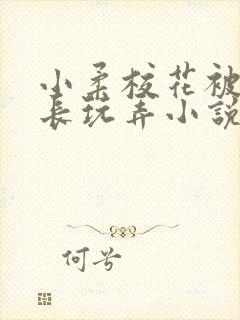 小柔校花被
長玩弄小說
何兮